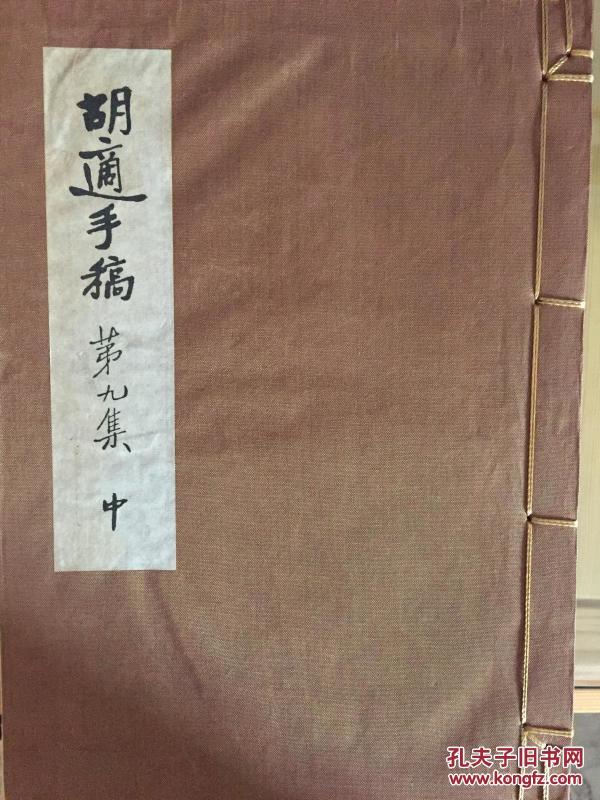 胡適手稿 第九集 中
孔夫子旧书网
www.kongfz.com